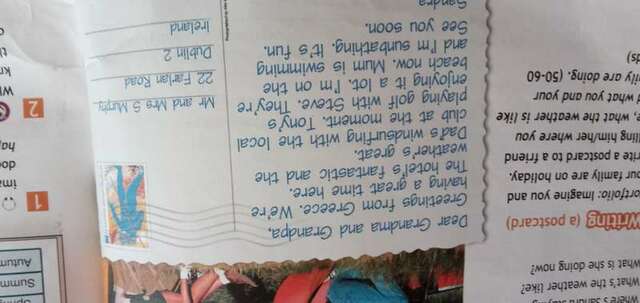 What's the weather like?
What is she doing now?
Writing (a postcard)
Portfolio: Imagine you and
your family are on holiday.
Write a postcard to a friend
telling him/her where you
what the weather is like
what you and your
are doing. (50-60
Dear Grandma and Grandpa,
Greetings from Greece. We're
having a great time here.
The hotel's fantastic and the
weather's great.
Dad's windsurfing with the local
club at the moment. Tony's
playing golf with Steve. They're
enjoying it a lot. I'm on the
beach now. Mum is swimming
and I'm sunbathing. It's fun.
See you soon.
Sandra
Mr and Mrs S Murphy,
22 Farlan Road
Dublin 2
Ireland
1
2